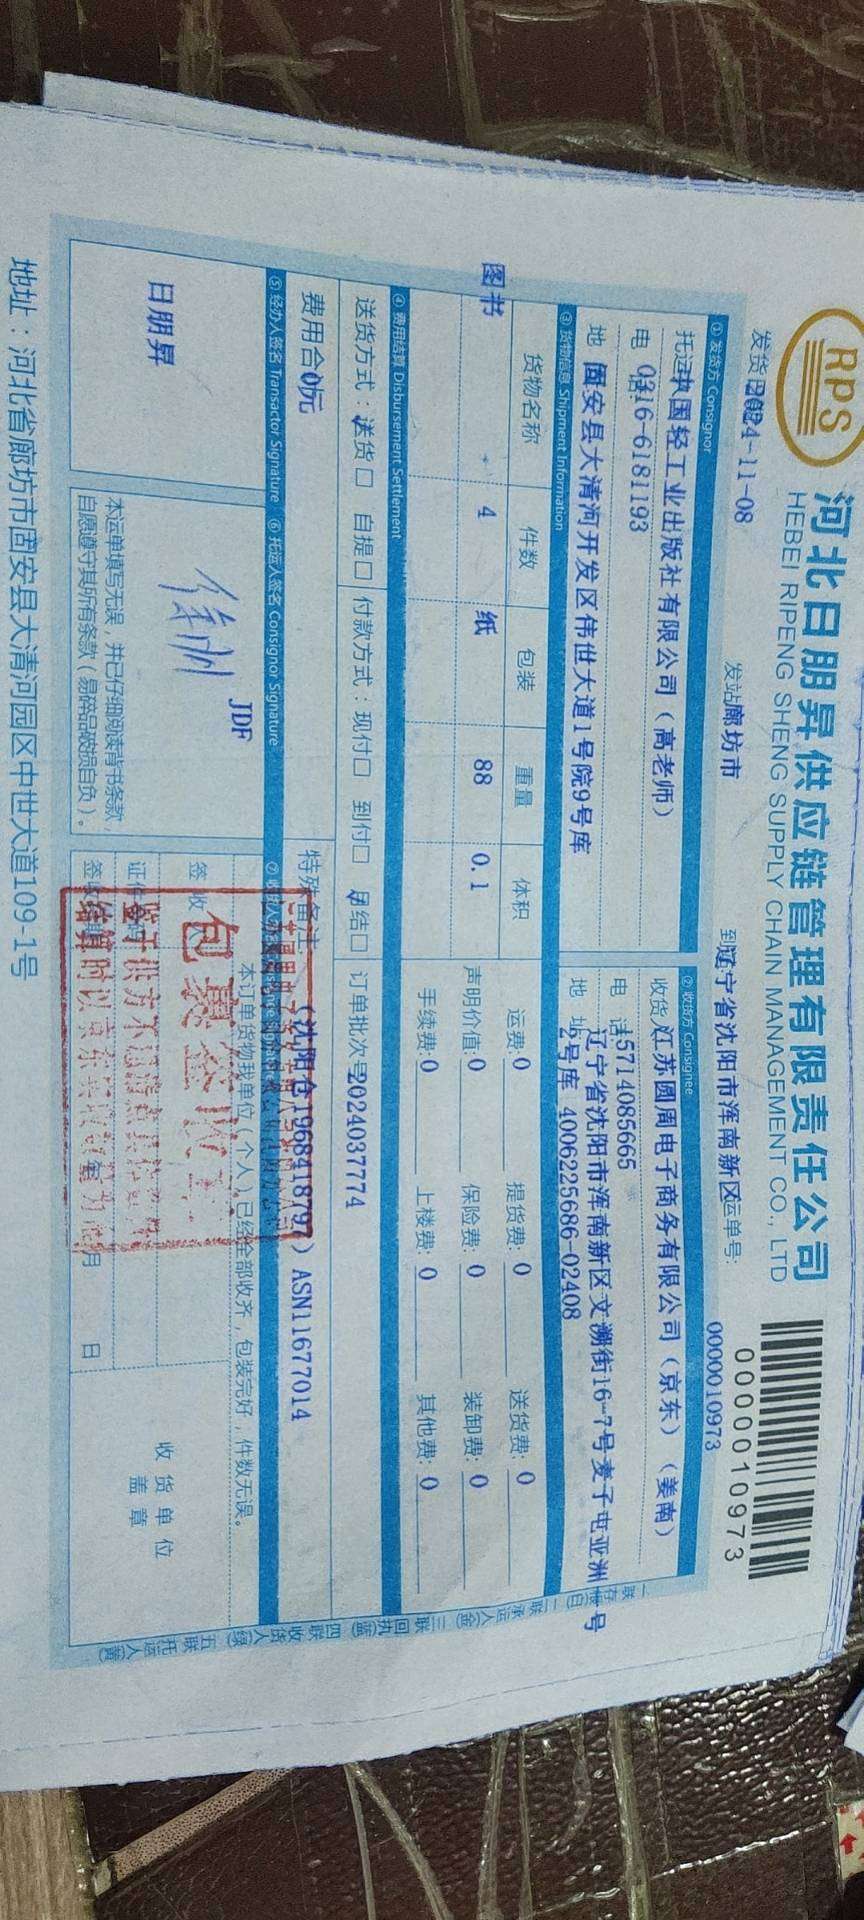 RPS
河北日朋昇供应链管理有限责任公司
HEBEI RIPENG SHENG SUPPLY CHAIN MANAGEMENT CO., LTD
00000010973
0000010973
发货日期2024-11-08 发站廊坊市 到辽宁省沈阳市浑南新区 运单号:
① 发货方 Consignor
② 收货方 Consignee
托运 中国轻工业出版社有限公司（高老师）
收货 江苏圆周电子商务有限公司（京东）（姜南）
电 话: 0316-6181193
电 话: 15714085665
地 固安县大清河开发区伟世大道1号院9号库
地 址: 辽宁省沈阳市浑南新区文溯街16-7号麦子屯亚洲一号
2号库 4006225686-02408
③ 货物信息 Shipment Information
货物名称 件数 包装 重量 体积
图书 4 纸 88 0.1
运费: 0 提货费: 0 送货费: 0
声明价值: 0 保险费: 0 装卸费: 0
手续费: 0 上楼费: 0 其他费: 0
④ 费用结算 Disbursement Settlement
送货方式：送货□ 自提□ 付款方式：现付□ 到付□ 月结□ 订单批次号2024037774
费用合 0元
特殊备注: （沈阳仓1968418797）ASN11677014
⑤ 经办人签名 Transactor Signature
⑥ 托运人签名 Consignor Signature
日朋昇
JDF
本运单填写无误，并已仔细阅读背书条款，
自愿遵守其所有条款（易碎品破损自负）。
本订单货物我单位（个人）已经全部收齐，包装完好，件数无误。
签 收
证件
月 日
收货单位
盖 章
包裹签收章
鉴于供方不
结算时以京东实
一联存根(白) 二联承运人 三联回执(蓝) 四联收货人(绿) 五联托运人(黄)
地址：河北省廊坊市固安县大清河园区中世大道109-1号